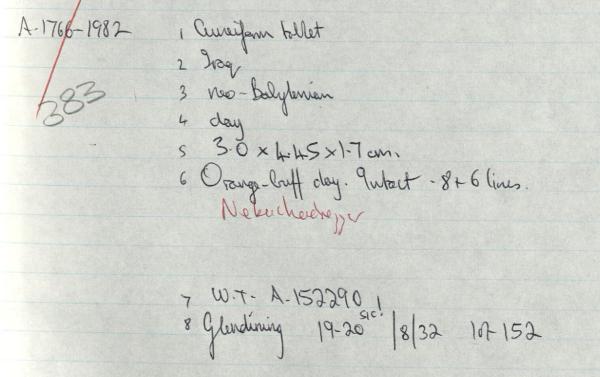 A.1766-1982
1 Cuneiform tablet
2 Iraq
383
3 neo-Babylonian
4 clay
5 3.0 x 4.45 x 1.7 cm.
6 Orange-buff clay. Intact - 8 + 6 lines.
Nebuchadrezzar
7 W.T- A-152290 !
sic!
8 Glendining 19-20 /8/32 lot 152